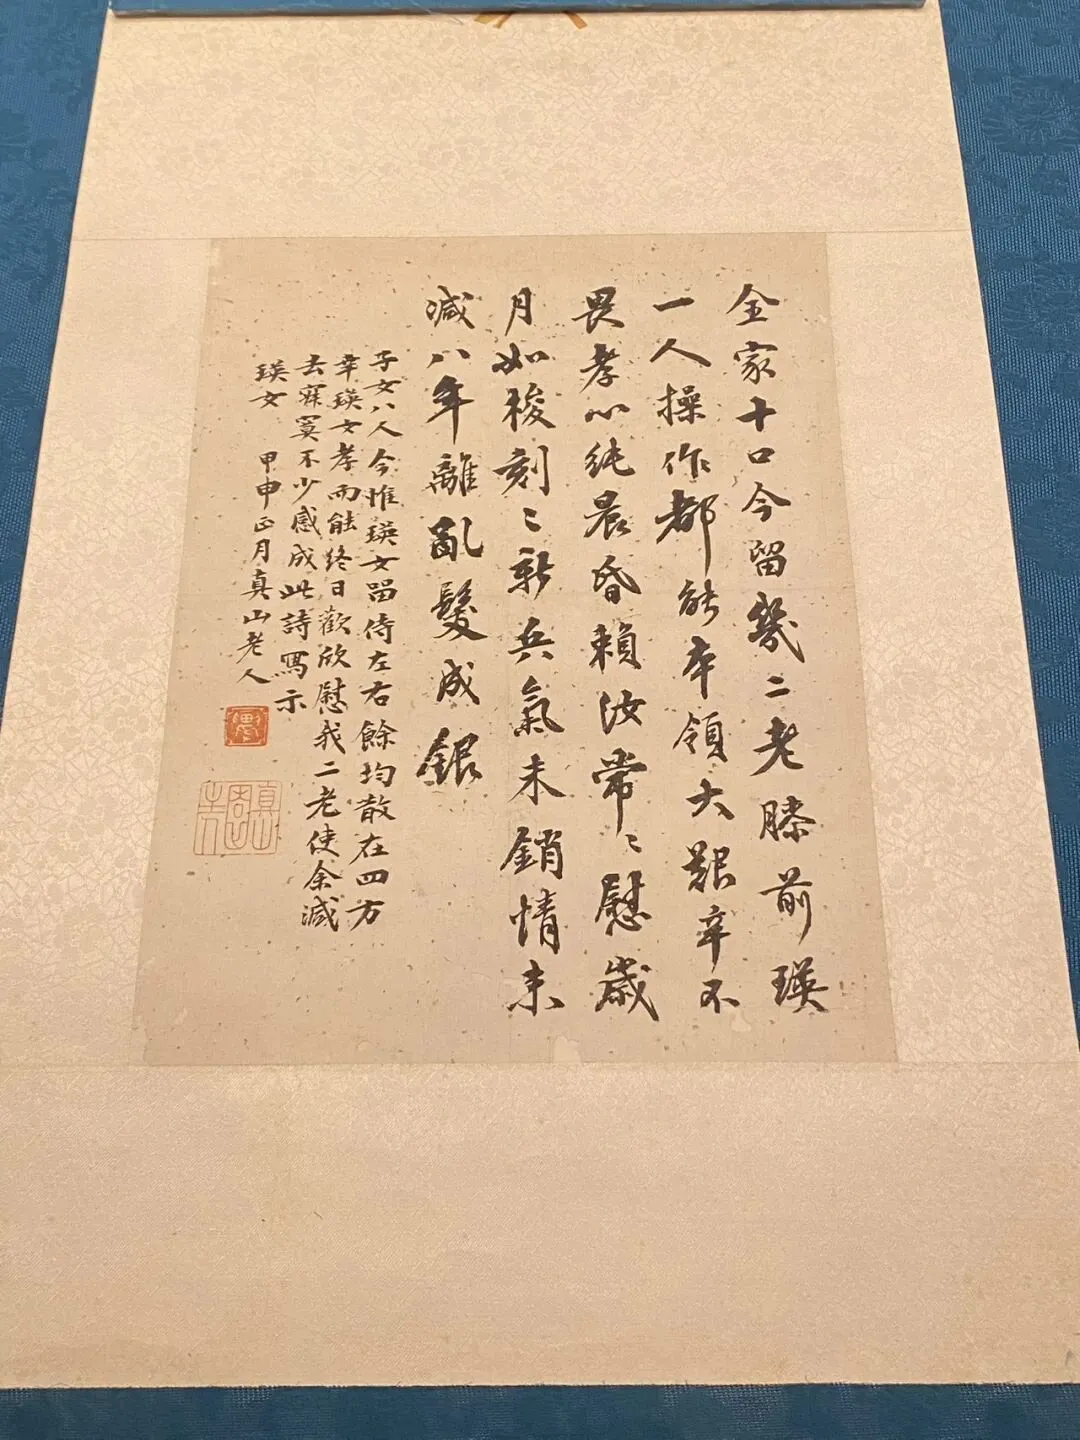 全家十口今留幾二老膝前瑛
一人操作都能本領大艱辛不
畏孝心純晨昏賴汝常〻慰歲
月如梭刻〻新兵氣未銷情未
減八年離亂髮成銀
子女八人今惟瑛女留侍左右餘均散在四方
幸瑛女孝而能終日歡欣慰我二老使余減
去寂寞不少感成此詩寫示
瑛女 甲申正月真山老人